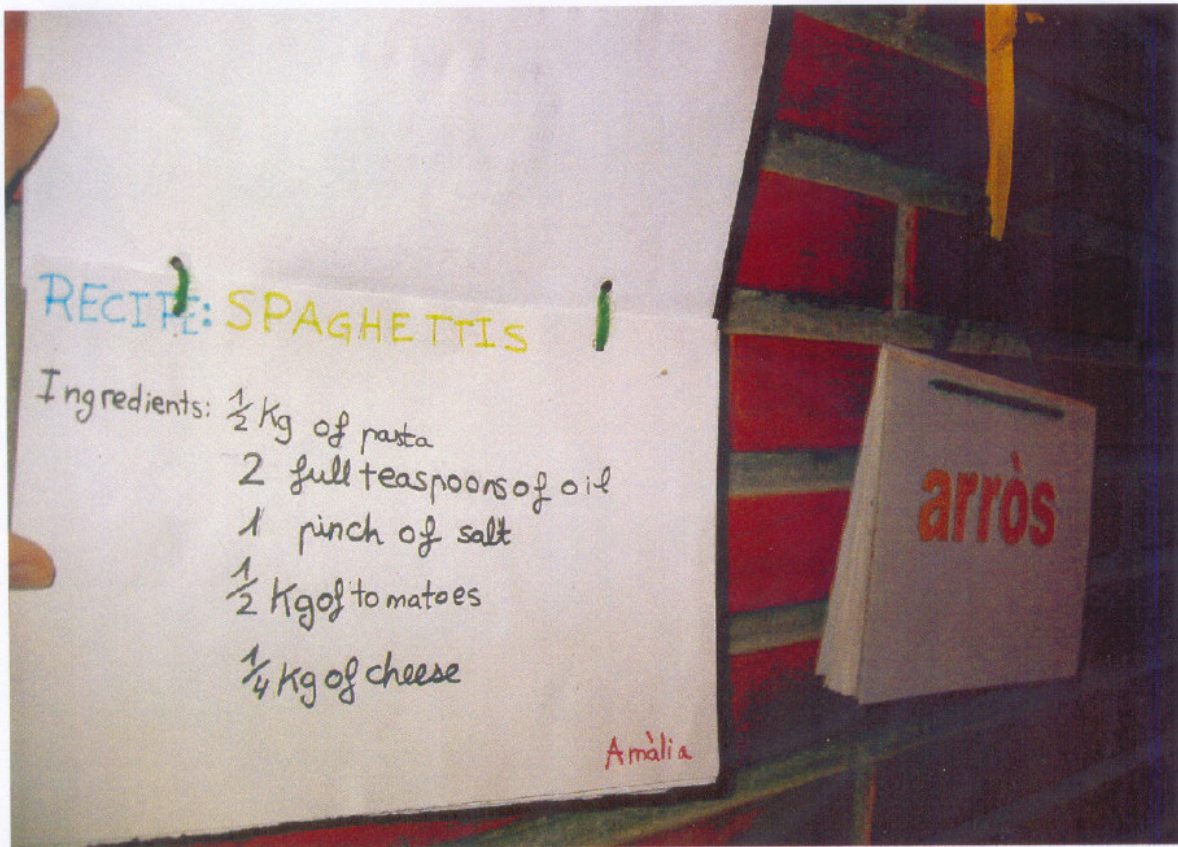 RECIPE: SPAGHETTIS
Ingredients: 1/2 Kg of pasta
2 full teaspoons of oil
1 pinch of salt
1/2 Kg of tomatoes
1/4 Kg of cheese
Amàlia
arròs